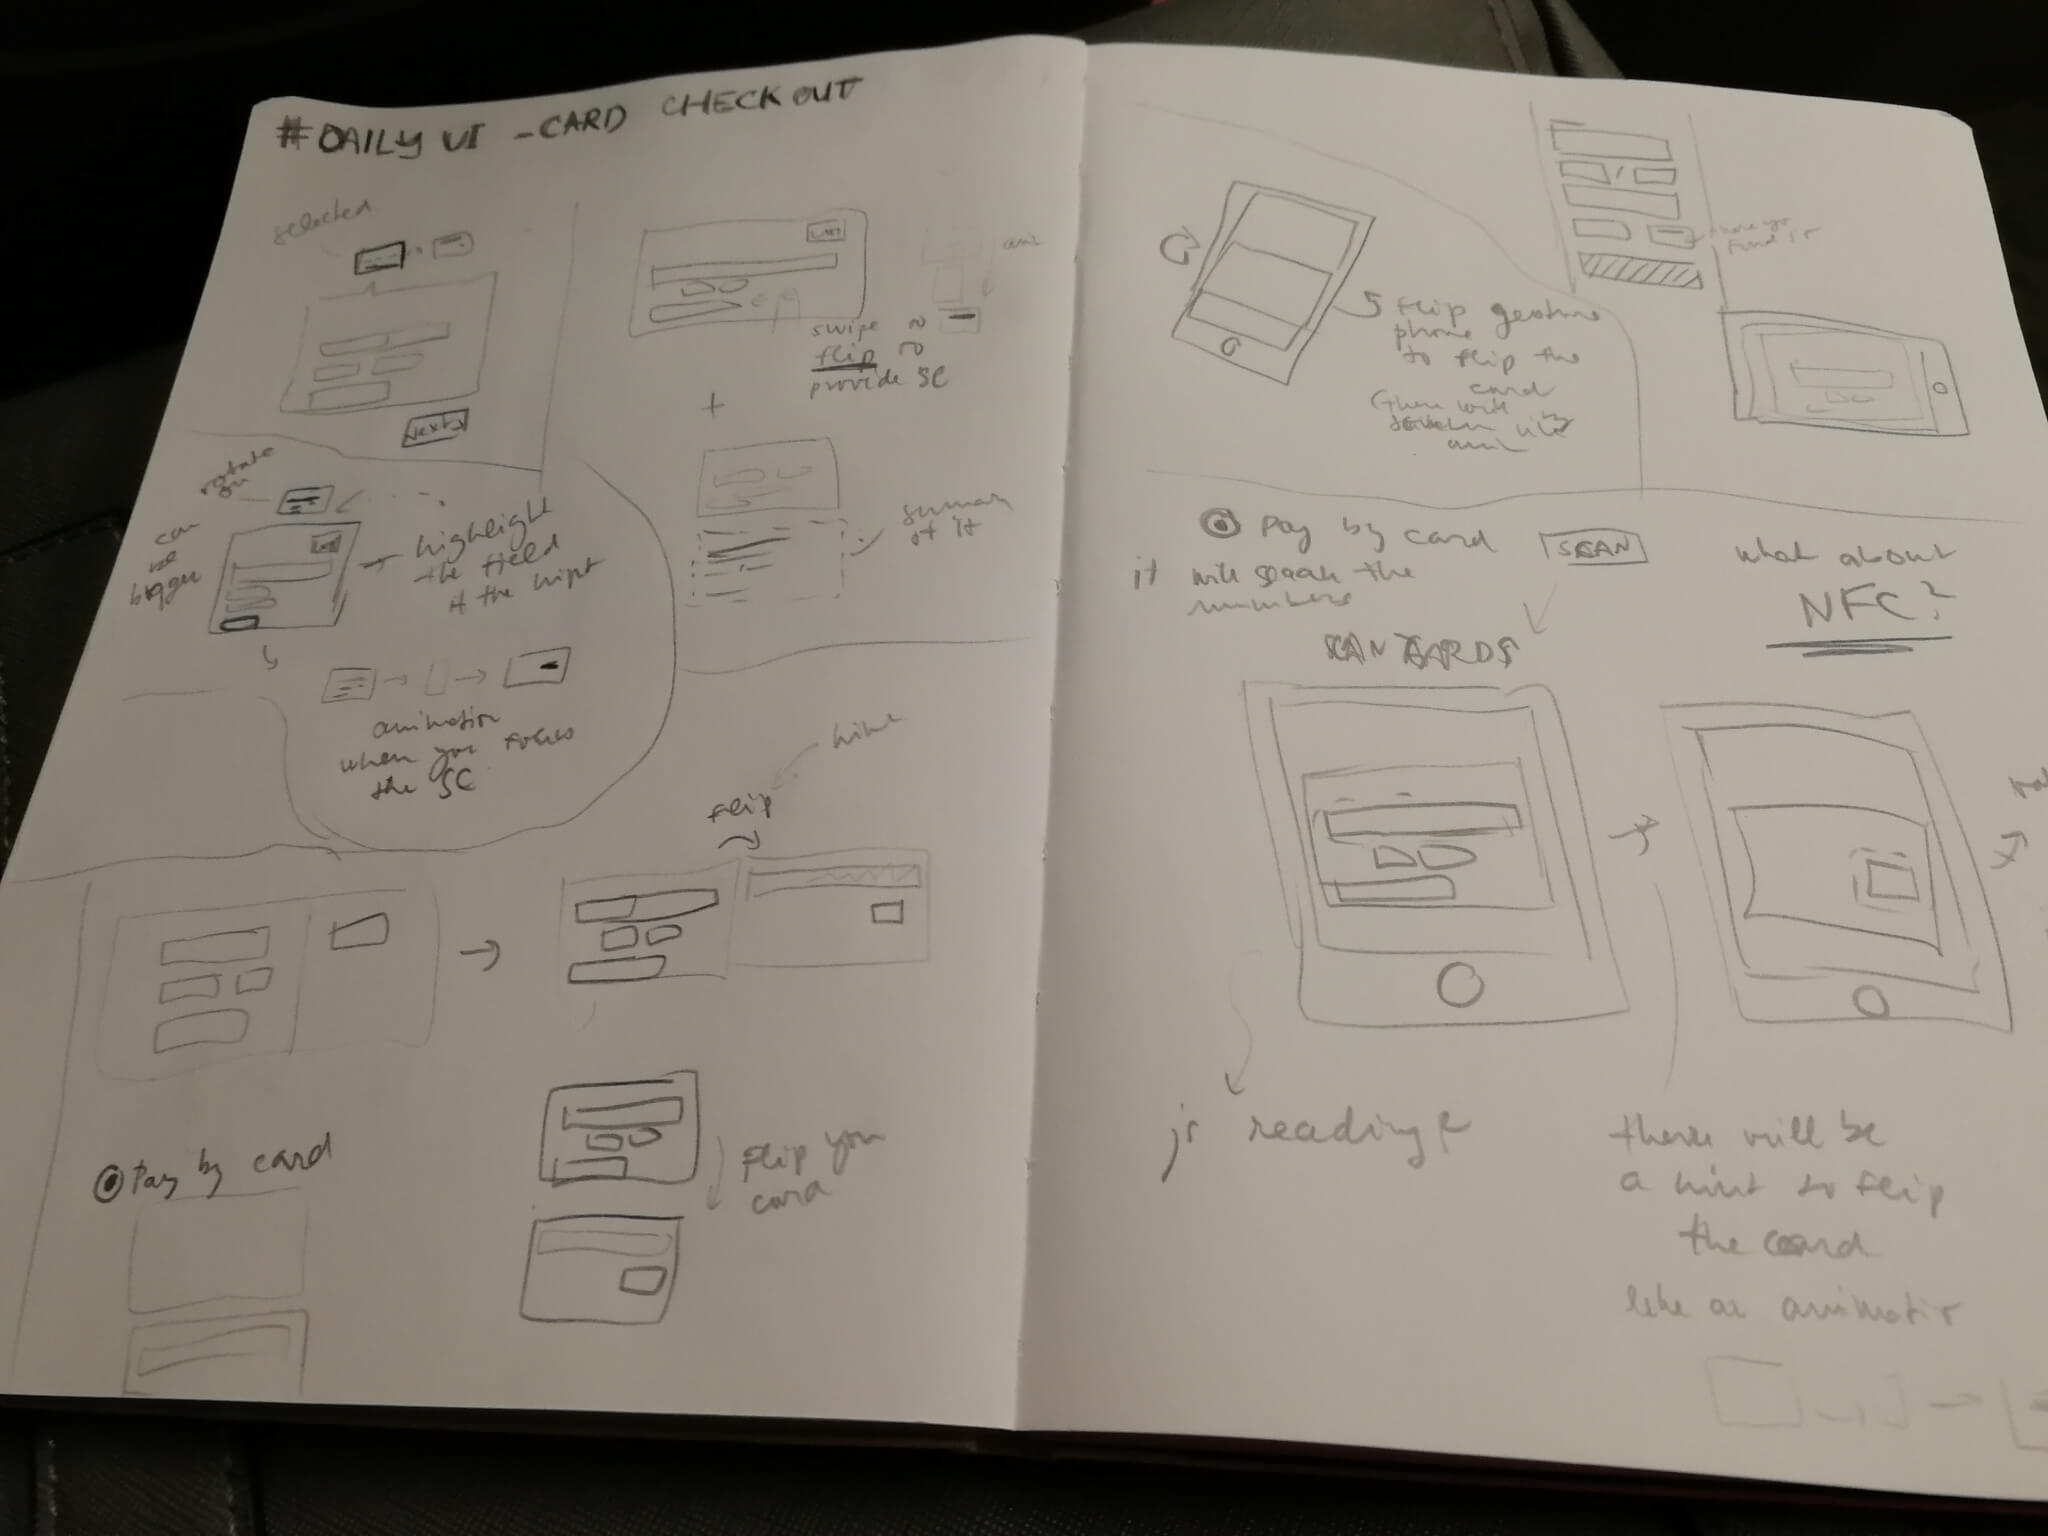 #DAILY UI - CARD CHECKOUT
selected
NEXT
swipe to
flip to
provide SC
+
summary
of it
rotate
on
can
be
bigger
highleight
the field
animation
when you focus
the SC
hint
flip
Pay by card
flip you
card
flip gesture
phone
to flip the
card
there will
find it
Pay by card
SCAN
it will scan the
numbers
what about
NFC?
SCAN CARDS
is reading
there will be
a hint to flip
the card
like a animatio